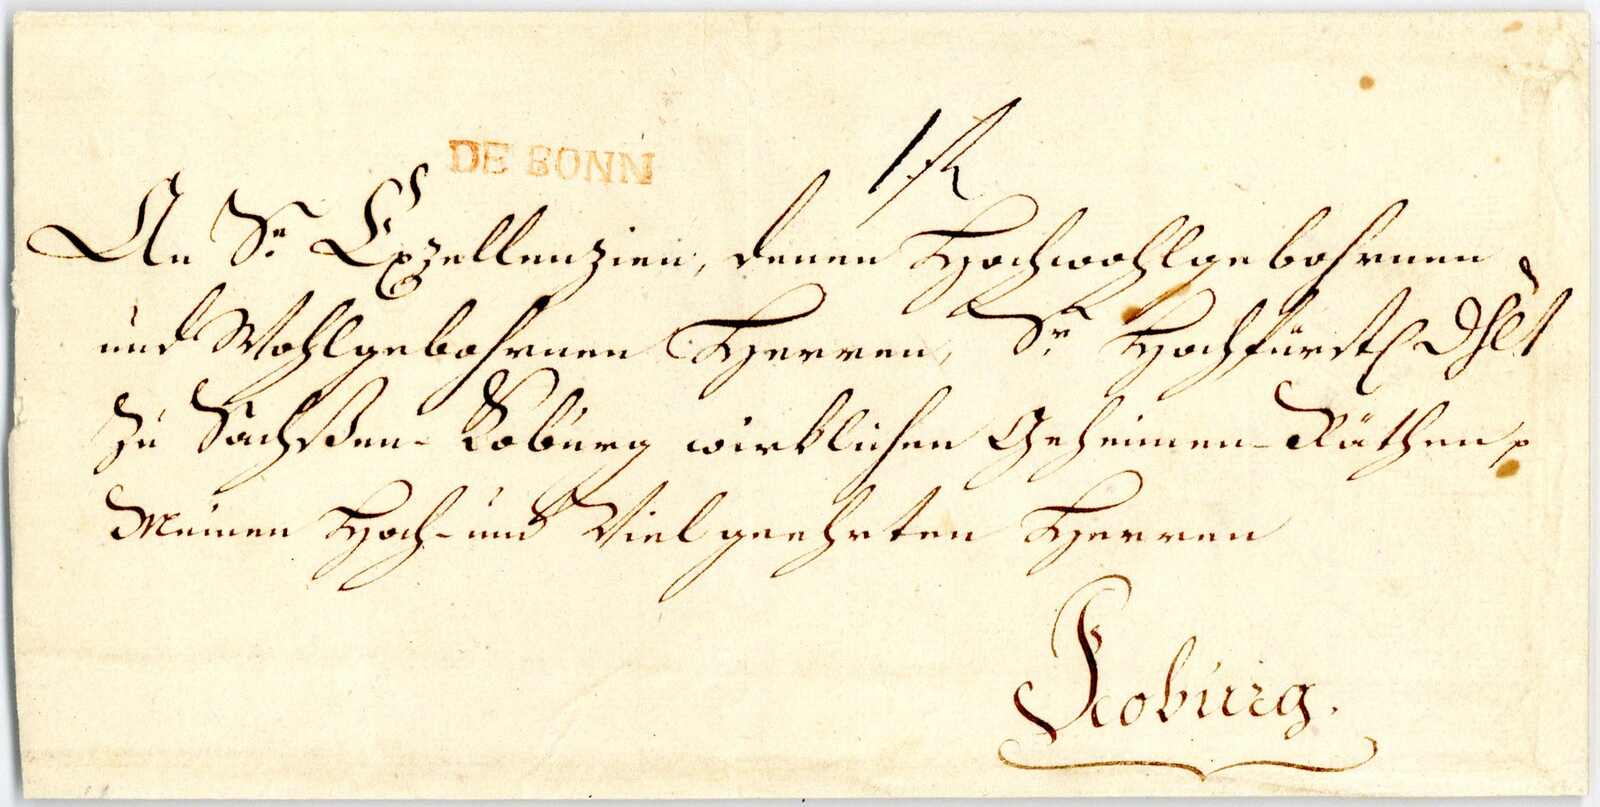 DE BONN
An Se Exzellenzien, denen Hochwohlgebohrnen
und Wohlgebohrnen Herren, Sr Hochfürstl Dhlt
zu Sachßen-Koburg wirklichen Geheimen-Räthen
Meinen Hoch- und Vielgeehrten Herren
Koburg.